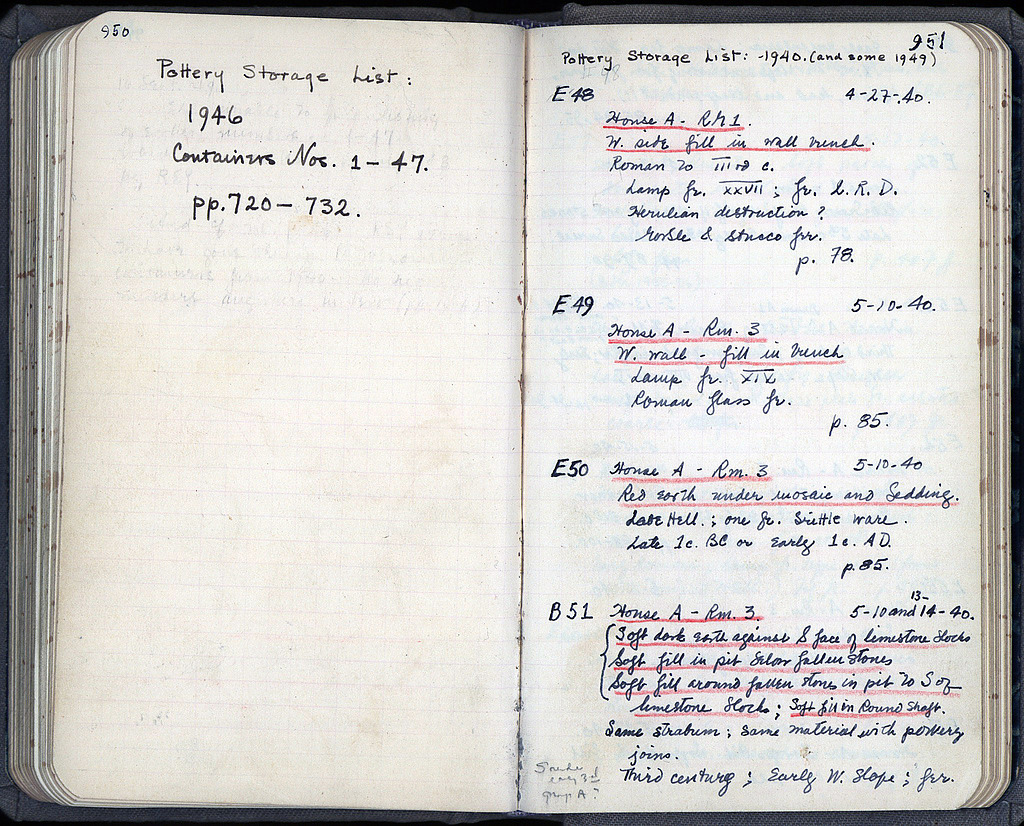 950
Pottery Storage List:
1946
Containers Nos. 1-47.
pp. 720-732.
951
Pottery Storage List: -1940. (and some 1949)
E48 4-27-40.
House A - RM 1.
W. side fill in wall trench.
Roman to IIIrd c.
Lamp fr. XXVII; fr. L.R.D.
Herulian destruction?
Marble & stucco frr.
p. 78.
E49 5-10-40.
House A - Rm. 3
W. wall - fill in trench
Lamp fr. XIV
Roman glass fr.
p. 85.
E50 House A - Rm. 3 5-10-40
Red earth under mosaic and bedding.
Late Hell.; one fr. brittle ware.
Late 1c. BC or Early 1c. AD.
p. 85.
B51 House A - Rm. 3 5-10 and 13-14-40.
Soft dark earth against S face of limestone blocks
Soft fill in pit below fallen stones
Soft fill around fallen stones in pit to S of
limestone blocks; Soft fill in Round Shaft.
Same stratum; same material with pottery
joins.
Third century; Early W. Slope; frr.
early 3rd
group A?